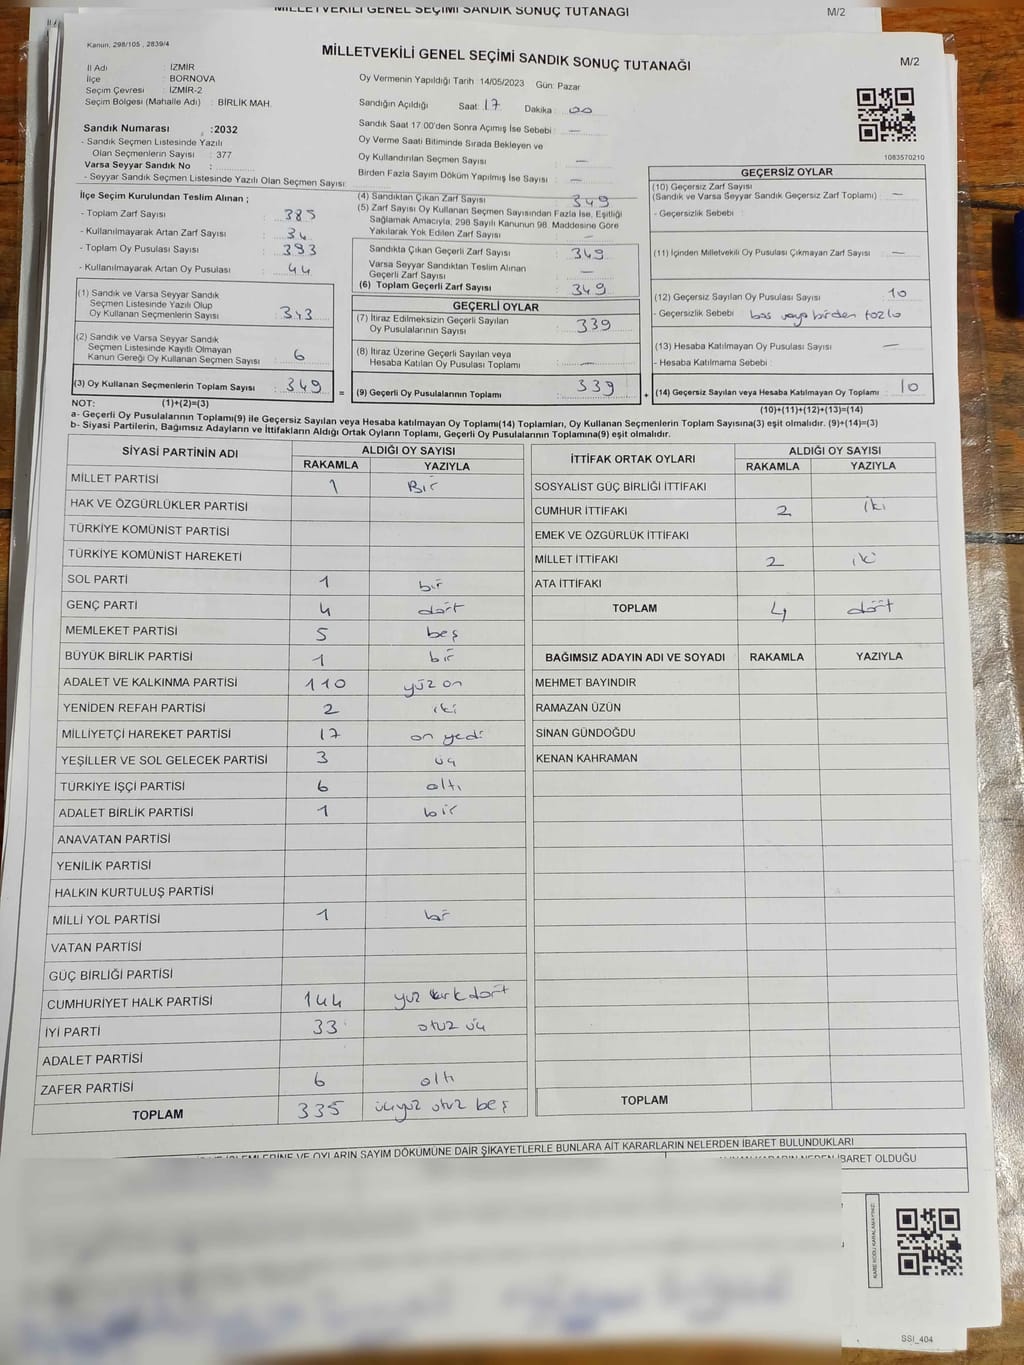 MİLLETVEKİLİ GENEL SEÇİMİ SANDIK SONUÇ TUTANAĞI
M/2
Kanun, 298/105 , 2839/4
MİLLETVEKİLİ GENEL SEÇİMİ SANDIK SONUÇ TUTANAĞI
M/2
İl Adı : İZMİR
İlçe : BORNOVA
Seçim Çevresi : İZMİR-2
Seçim Bölgesi (Mahalle Adı) : BİRLİK MAH.
Sandık Numarası : 2032
- Sandık Seçmen Listesinde Yazılı
Olan Seçmenlerin Sayısı : 377
Varsa Seyyar Sandık No :
- Seyyar Sandık Seçmen Listesinde Yazılı Olan Seçmen Sayısı:
Oy Vermenin Yapıldığı Tarih 14/05/2023 Gün: Pazar
Sandığın Açıldığı Saat: 17 Dakika : 00
Sandık Saat 17:00'den Sonra Açımış İse Sebebi : —
Oy Verme Saati Bitiminde Sırada Bekleyen ve
Oy Kullandırılan Seçmen Sayısı : —
Birden Fazla Sayım Döküm Yapılmış İse Sayısı : —
1083570210
İlçe Seçim Kurulundan Teslim Alınan ;
- Toplam Zarf Sayısı : 383
- Kullanılmayarak Artan Zarf Sayısı : 34
- Toplam Oy Pusulası Sayısı : 393
- Kullanılmayarak Artan Oy Pusulası : 44
(1) Sandık ve Varsa Seyyar Sandık
Seçmen Listesinde Yazılı Olup
Oy Kullanan Seçmenlerin Sayısı : 343
(2) Sandık ve Varsa Seyyar Sandık
Seçmen Listesinde Kayıtlı Olmayan
Kanun Gereği Oy Kullanan Seçmen Sayısı : 6
(3) Oy Kullanan Seçmenlerin Toplam Sayısı : 349 =
(4) Sandıktan Çıkan Zarf Sayısı : 349
(5) Zarf Sayısı Oy Kullanan Seçmen Sayısından Fazla İse, Eşitliği
Sağlamak Amacıyla, 298 Sayılı Kanunun 98. Maddesine Göre
Yakılarak Yok Edilen Zarf Sayısı : —
Sandıkta Çıkan Geçerli Zarf Sayısı : 349
Varsa Seyyar Sandıktan Teslim Alınan
Geçerli Zarf Sayısı : —
(6) Toplam Geçerli Zarf Sayısı : 349
GEÇERLİ OYLAR
(7) İtiraz Edilmeksizin Geçerli Sayılan
Oy Pusulalarının Sayısı : 339
(8) İtiraz Üzerine Geçerli Sayılan veya
Hesaba Katılan Oy Pusulası Toplamı : —
(9) Geçerli Oy Pusulalarının Toplamı : 339 +
GEÇERSİZ OYLAR
(10) Geçersiz Zarf Sayısı
(Sandık ve Varsa Seyyar Sandık Geçersiz Zarf Toplamı) : —
- Geçersizlik Sebebi :
(11) İçinden Milletvekili Oy Pusulası Çıkmayan Zarf Sayısı : —
(12) Geçersiz Sayılan Oy Pusulası Sayısı : 10
- Geçersizlik Sebebi : bos veya birden fazla
(13) Hesaba Katılmayan Oy Pusulası Sayısı : —
- Hesaba Katılmama Sebebi :
(14) Geçersiz Sayılan veya Hesaba Katılmayan Oy Toplamı : 10
NOT: (1)+(2)=(3)
(10)+(11)+(12)+(13)=(14)
a- Geçerli Oy Pusulalarının Toplamı(9) ile Geçersiz Sayılan veya Hesaba katılmayan Oy Toplamı(14) Toplamları, Oy Kullanan Seçmenlerin Toplam Sayısına(3) eşit olmalıdır. (9)+(14)=(3)
b- Siyasi Partilerin, Bağımsız Adayların ve İttifakların Aldığı Ortak Oyların Toplamı, Geçerli Oy Pusulalarının Toplamına(9) eşit olmalıdır.
SİYASİ PARTİNİN ADI ALDIĞI OY SAYISI
RAKAMLA YAZIYLA
MİLLET PARTİSİ 1 Bir
HAK VE ÖZGÜRLÜKLER PARTİSİ
TÜRKİYE KOMÜNİST PARTİSİ
TÜRKİYE KOMÜNİST HAREKETİ
SOL PARTİ 1 bir
GENÇ PARTİ 4 dört
MEMLEKET PARTİSİ 5 beş
BÜYÜK BİRLİK PARTİSİ 1 bir
ADALET VE KALKINMA PARTİSİ 110 yüz on
YENİDEN REFAH PARTİSİ 2 iki
MİLLİYETÇİ HAREKET PARTİSİ 17 on yedi
YEŞİLLER VE SOL GELECEK PARTİSİ 3 üç
TÜRKİYE İŞÇİ PARTİSİ 6 altı
ADALET BİRLİK PARTİSİ 1 bir
ANAVATAN PARTİSİ
YENİLİK PARTİSİ
HALKIN KURTULUŞ PARTİSİ
MİLLİ YOL PARTİSİ 1 bir
VATAN PARTİSİ
GÜÇ BİRLİĞİ PARTİSİ
CUMHURİYET HALK PARTİSİ 144 yüz kırk dört
İYİ PARTİ 33 otuz üç
ADALET PARTİSİ
ZAFER PARTİSİ 6 altı
TOPLAM 335 üçyüz otuz beş
İTTİFAK ORTAK OYLARI ALDIĞI OY SAYISI
RAKAMLA YAZIYLA
SOSYALIST GÜÇ BİRLİĞİ İTTİFAKI
CUMHUR İTTİFAKI 2 iki
EMEK VE ÖZGÜRLÜK İTTİFAKI
MİLLET İTTİFAKI 2 iki
ATA İTTİFAKI
TOPLAM 4 dört
BAĞIMSIZ ADAYIN ADI VE SOYADI RAKAMLA YAZIYLA
MEHMET BAYINDIR
RAMAZAN ÜZÜN
SİNAN GÜNDOĞDU
KENAN KAHRAMAN
TOPLAM
VE OYLARIN SAYIM DÖKÜMÜNE DAİR ŞİKAYETLERLE BUNLARA AİT KARARLARIN NELERDEN İBARET BULUNDUKLARI
İBARET OLDUĞU
KARE KODU KARALAMAYINIZ!
SSI_404